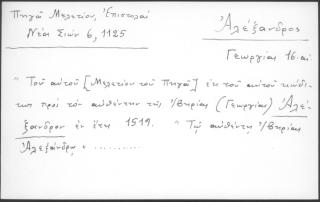 Πηγᾶ Μελετίου, Ἐπιστολαί
Νέα Σιών 6, 1125
Ἀλέξανδρος
Γεωργίας 16 αἰ.
" Τοῦ αὐτοῦ [Μελετίου τοῦ Πηγᾶ] ἐκ τοῦ αὐτοῦ κώδι-
κος πρὸς τὸν αὐθέντην τῆς Ἰβηρίας (Γεωργίας) Ἀλέ-
ξανδρον ἐν ἔτει 1519. " Τῷ αὐθέντῃ Ἰβηρίας
Ἀλεξάνδρῳ . ..........